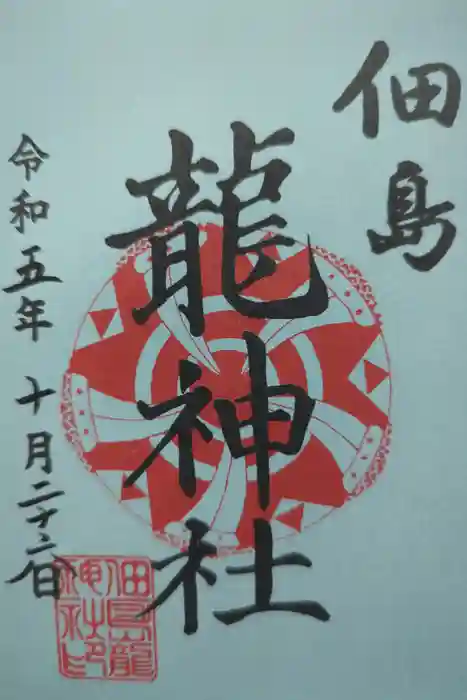 佃島
龍神社
令和五年十月二十六日
佃島龍
神社印